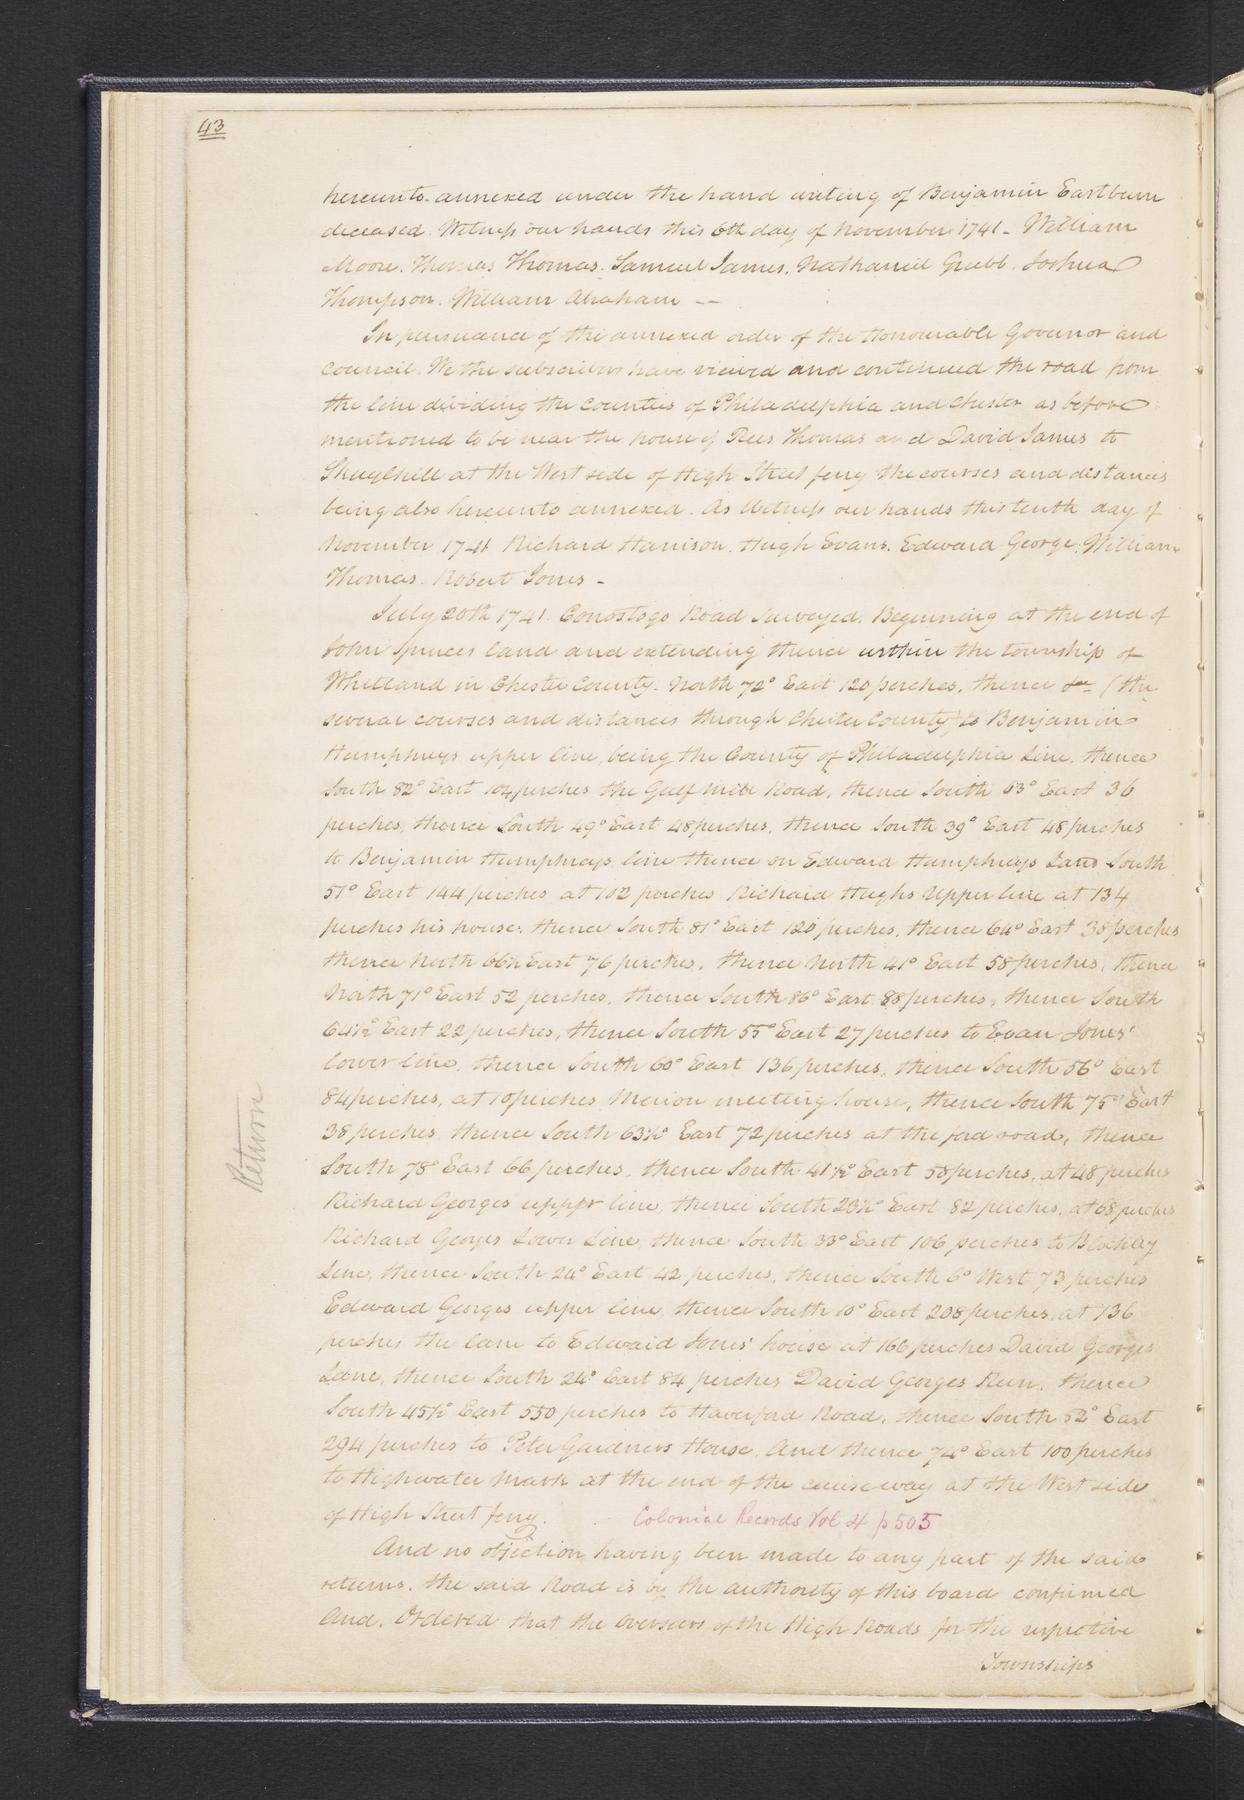 43
hereunto annexed under the hand writing of Benjamin Eastburn
deceased. Witness our hands this 6th day of November 1741 - William
Moore. Thomas Thomas. Samuel James. Nathaniel Grubb. Joshua
Thompson. William Abraham --
In pursuance of the annexed order of the Honourable Governor and
Council. We the subscribers have viewed and continued the road from
the line dividing the Counties of Philadelphia and Chester as before
mentioned to be near the house of Rees Thomas and David James to
Skuylkill at the West side of High Street ferry the courses and distances
being also hereunto annexed. As Witness our hands this tenth day of
November 1741 Richard Harrison. Hugh Evans. Edward George. William
Thomas. Robert Jones -
July 20th 1741. Conostogo Road surveyed. Beginning at the end of
John Spruces land and extending thence within the township of
Whitland in Chester County. North 72° East 120 perches, thence &c (the
several courses and distances through Chester County) to Benjamin
Humphreys upper line, being the County of Philadelphia Line, thence
South 82° East 104 perches the Gulf Mill Road, thence South 63° East 36
perches, thence South 49° East 48 perches, thence South 39° East 48 perches
to Benjamin Humphreys line thence on Edward Humphreys Land South
51° East 144 perches at 102 perches Richard Hughs Upper line at 134
perches his house, thence South 81° East 120 perches, thence 64° East 38 perches
thence North 66½ East 76 perches, thence North 41° East 58 perches, thence
North 71° East 52 perches, thence South 86° East 88 perches, thence South
64½° East 22 perches, thence South 55° East 27 perches to Evan Jones'
lower line, thence South 60° East 136 perches, thence South 56° East
84 perches, at 10 perches Merion meeting house, thence South 75° East
38 perches thence South 63½° East 72 perches at the ford road, thence
South 78° East 66 perches, thence South 41½° East 58 perches, at 48 perches
Richard Georges upper line, thence South 23½° East 82 perches, at 68 perches
Richard Georges Lower Line thence South 33° East 106 perches to Blockley
Line, thence South 24° East 42 perches, thence South 6° West 73 perches
Edward Georges upper line, thence South 10° East 208 perches, at 136
perches the lane to Edward Jones' house at 166 perches David Georges
Lane, thence South 24° East 84 perches David Georges Run, thence
South 45½° East 550 perches to Haverford Road, thence South 52° East
294 perches to Peter Gardners House. And thence 74° East 100 perches
to Highwater Mark at the end of the causeway at the West side
of High Street ferry. Colonial Records Vol 4 p 505
And no objection having been made to any part of the said
returns. the said Road is by the authority of this board confirmed
And. Ordered that the Overseers of the High Roads for the respective
Townships
Return